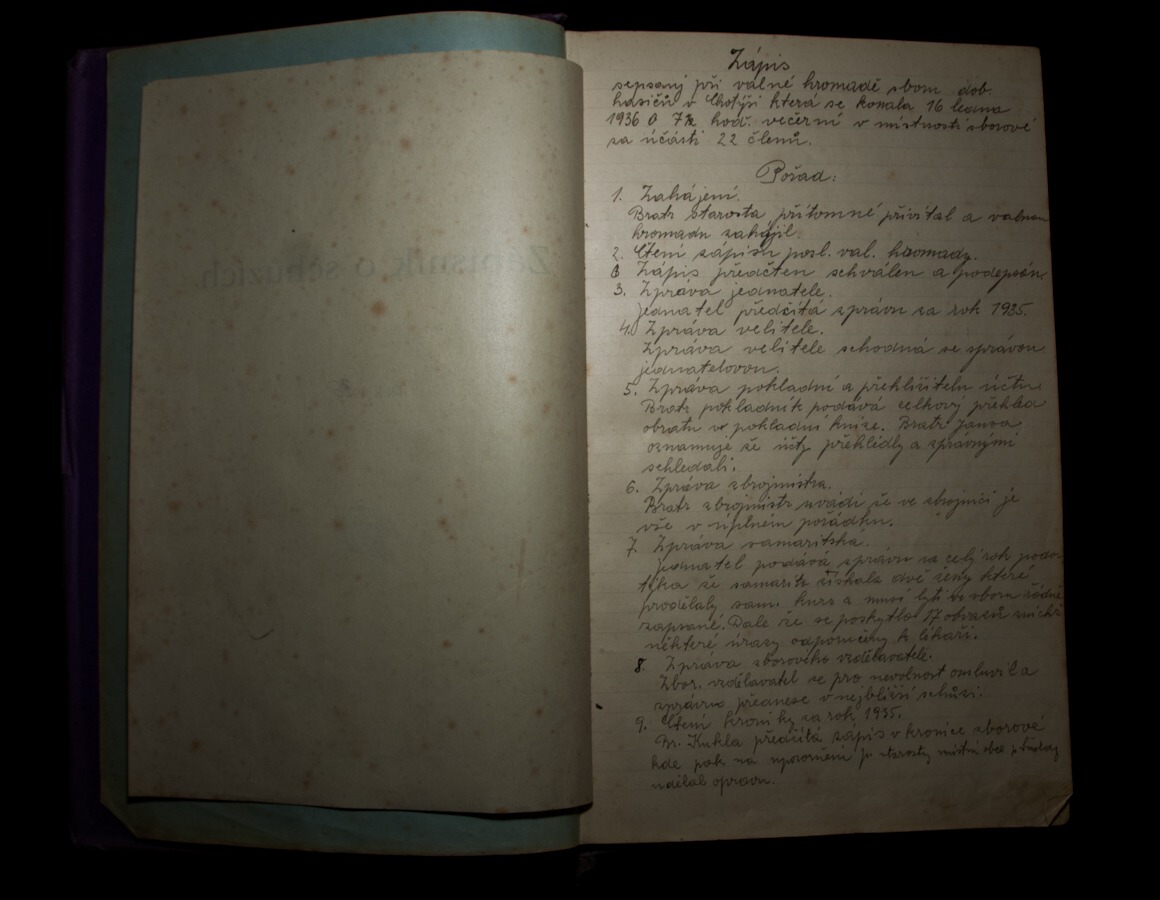 Zápisník o schůzích.
Zápis
sepsaný při valné hromadě sboru dob.
hasičů v Chotýši která se konala 16 ledna
1936 o 7½ hod. večerní v místnosti sborové
za účasti 22 členů.
Pořad:
1. Zahájení.
Bratr starosta přítomné přivítal a valnou
hromadu zahájil.
2. Čtení zápisu posl. val. hromady.
Zápis předčten schválen a podepsán.
3. Zpráva jednatele.
Jednatel předčítá zprávu za rok 1935.
4. Zpráva velitele.
Zpráva velitele schodná se zprávou
jednatelovou.
5. Zpráva pokladní a přehlížitelu účtu.
Bratr pokladník podává celkový přehled
obratu v pokladní knize. Bratr
oznamuje že účty přehlédly a správnými
schledali.
6. Zpráva zbrojmistra.
Bratr zbrojmistr uvádí že ve zbrojnici je
vše v úplném pořádku.
7. Zpráva samaritská.
Jednatel podává zprávu za celý rok
že samarite získala dvě ženy které
prodělaly sam. kurs a musí býti ve sboru řádně
zapsané. Dale že se poskytlo 17
některé úrazy odporučeny k lékaři.
8. Zpráva sborového vzdělavatele.
Zbor. vzdělavatel se pro nevolnost omluvil a
zprávu přednese v nejbližší schůzi.
9. Čtení kroniky za rok 1935.
Br. Kukla předčítá zápis v kronice sborové
kde pak na upozornění starosty místní obce
udělal opravu.